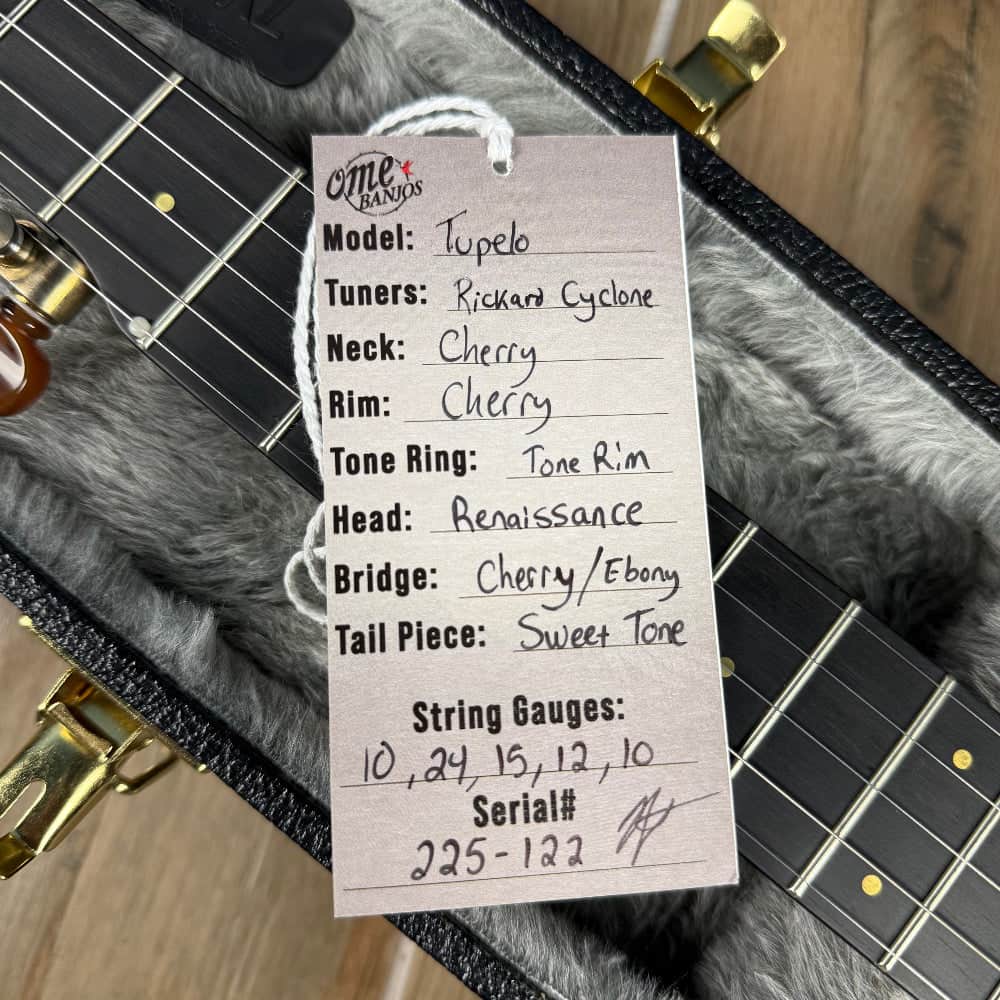 ome
BANJOS
Model: Tupelo
Tuners: Rickard Cyclone
Neck: Cherry
Rim: Cherry
Tone Ring: Tone Rim
Head: Renaissance
Bridge: Cherry/Ebony
Tail Piece: Sweet Tone
String Gauges:
10, 24, 15, 12, 10
Serial#
225-122